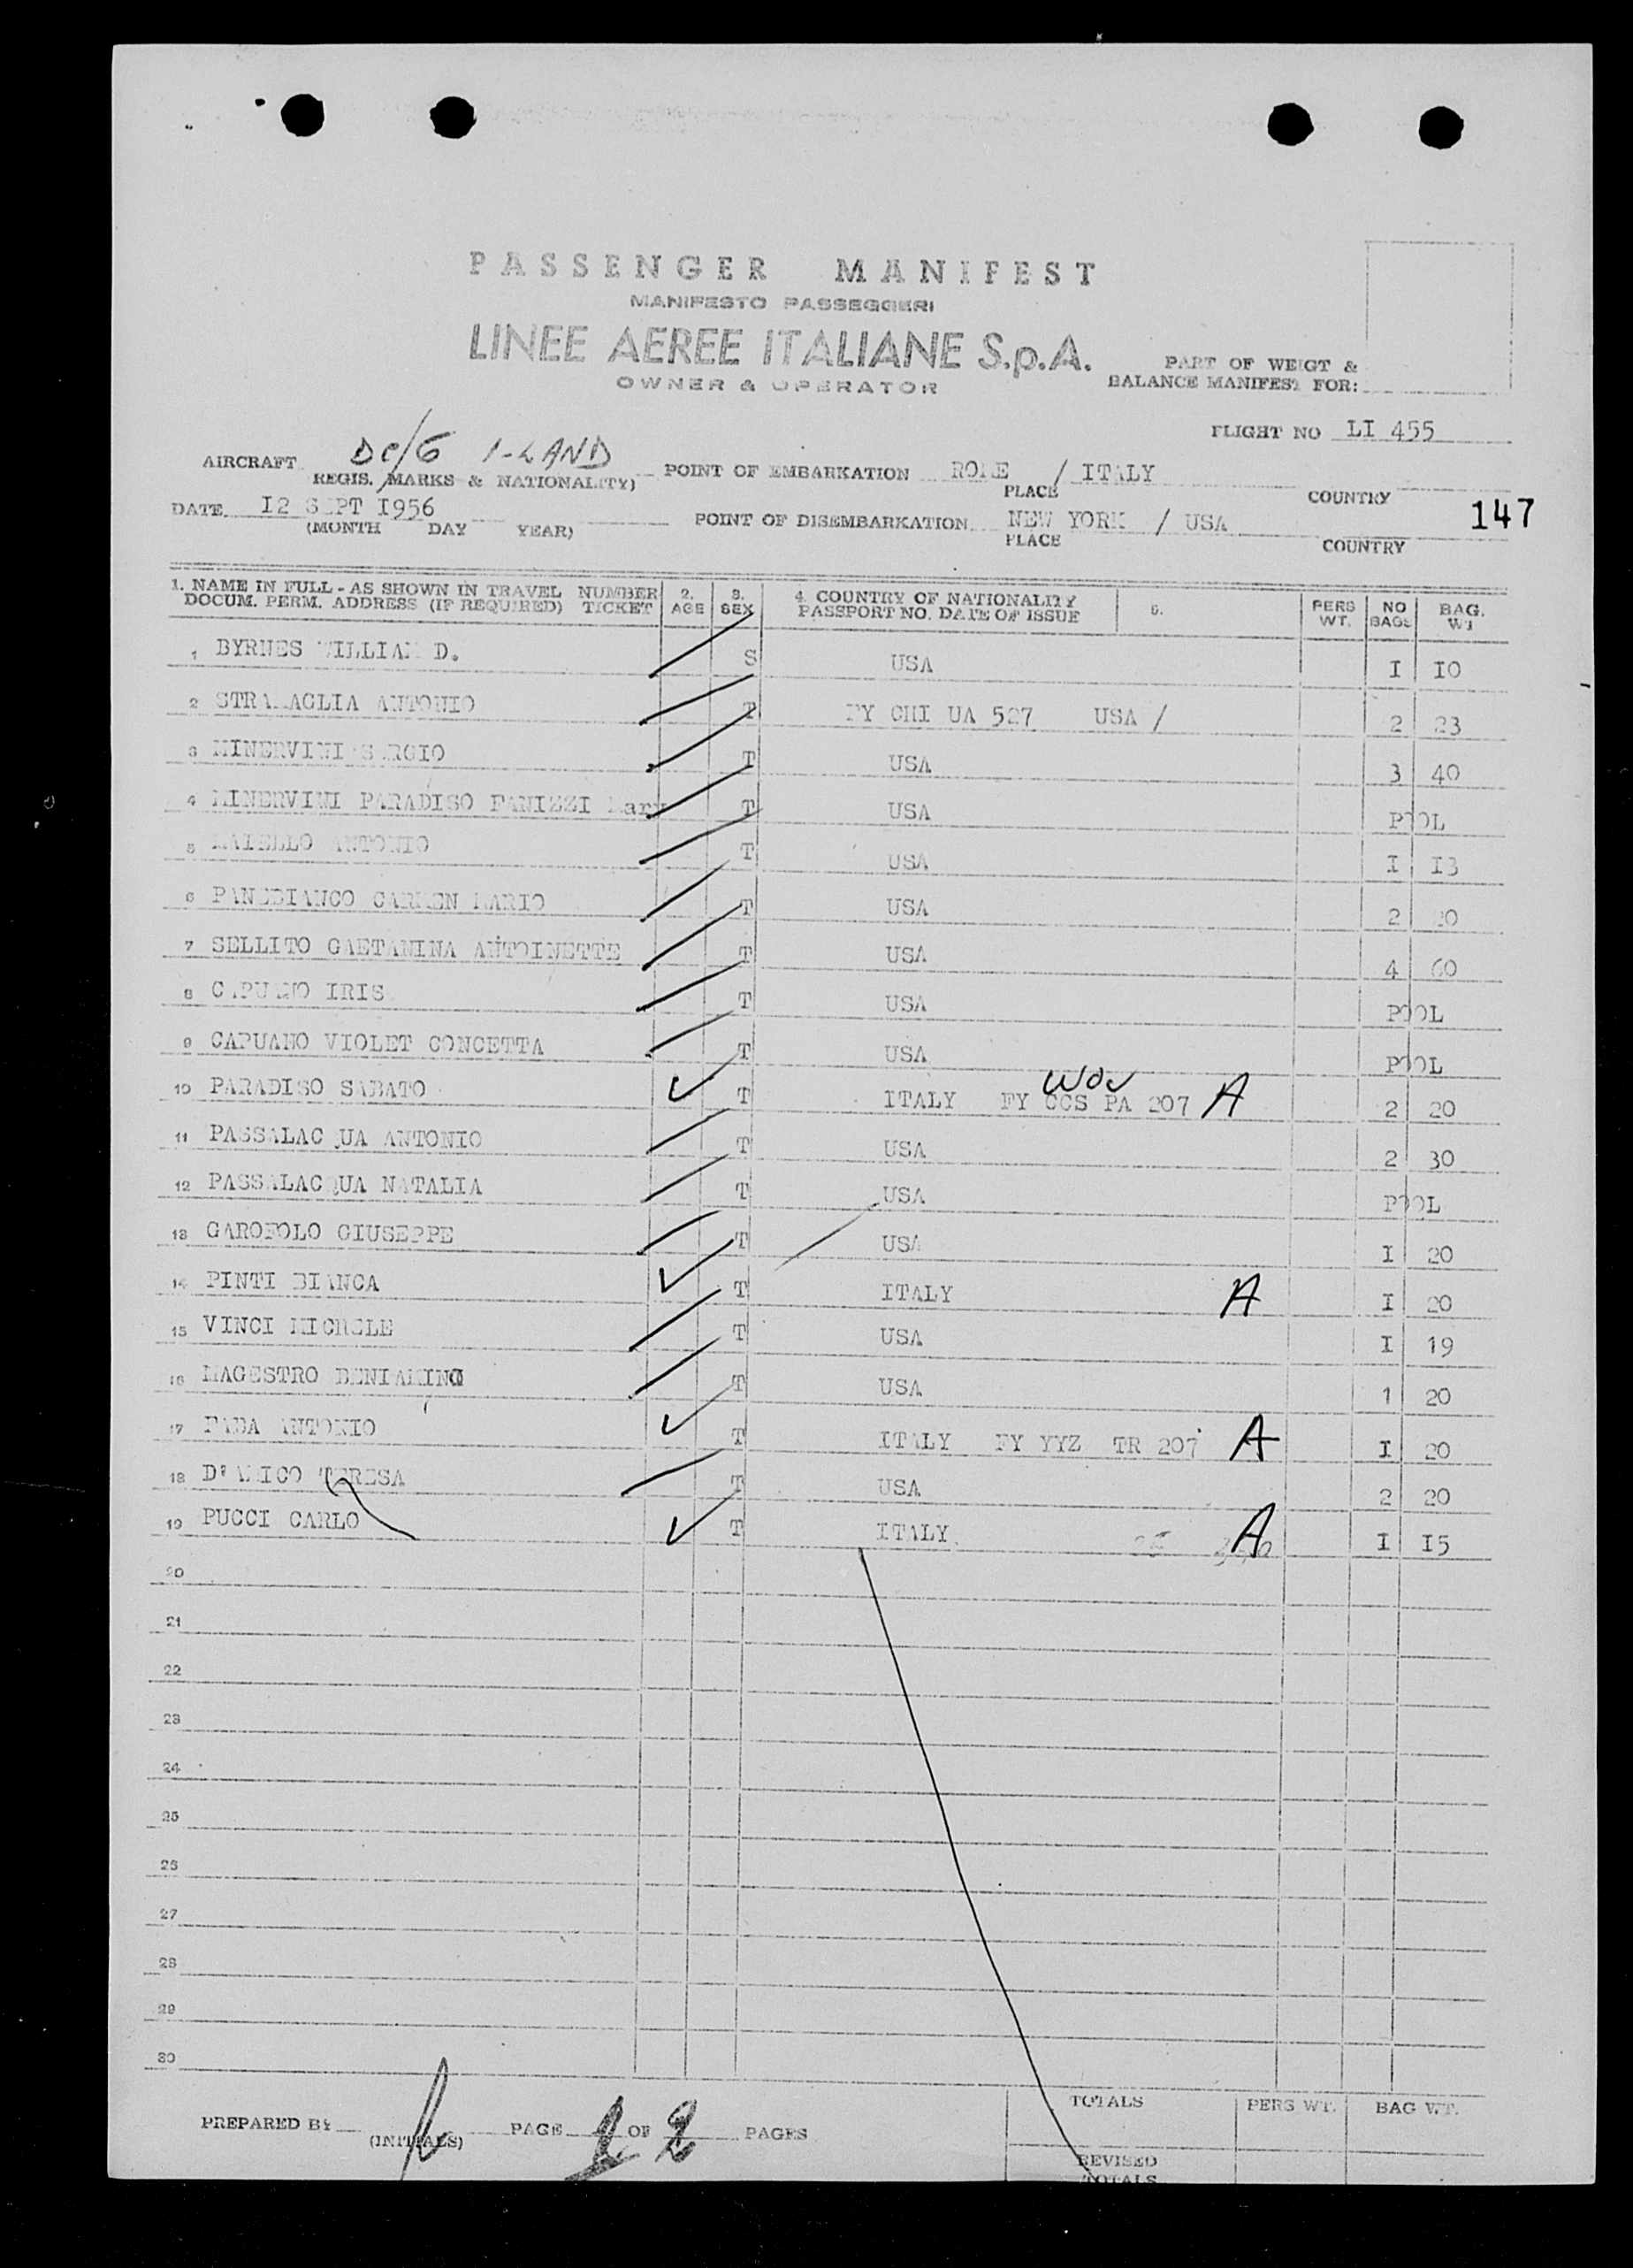 PASSENGER MANIFEST
MANIFESTO PASSEGGERI
LINEE AEREE ITALIANE S.p.A.
OWNER & OPERATOR
PART OF WEIGT &
BALANCE MANIFEST FOR:
FLIGHT NO LI 455
AIRCRAFT DC/6 I-LAND POINT OF EMBARKATION ROME / ITALY
REGIS. MARKS & NATIONALITY) PLACE COUNTRY
DATE I2 SEPT I956 POINT OF DISEMBARKATION NEW YORK / USA 147
(MONTH DAY YEAR) PLACE COUNTRY
1. NAME IN FULL - AS SHOWN IN TRAVEL NUMBER 2. 3. 4. COUNTRY OF NATIONALITY 5. PERS NO BAG.
DOCUM. PERM. ADDRESS (IF REQUIRED) TICKET AGE SEX PASSPORT NO. DATE OF ISSUE WT. BAGS WT
1 BYRNES WILLIAM D. S USA I IO
2 ANTONIO T FY CHI UA 527 USA / 2 23
3 MINERVINI SERGIO T USA 3 40
4 MINERVINI PARADISO FANIZZI Mary T USA POOL
5 MAIELLO ANTONIO T USA I I3
6 PANEBIANCO CARMEN MARIO T USA 2 20
7 SELLITO GAETANINA ANTOINETTE T USA 4 60
8 CAPUANO IRIS T USA POOL
9 CAPUANO VIOLET CONCETTA T USA POOL
10 PARADISO SABATO T ITALY FY CCS PA 207 A 2 20
11 PASSALACQUA ANTONIO T USA 2 30
12 PASSALACQUA NATALIA T USA POOL
13 GAROFOLO GIUSEPPE T USA I 20
14 PINTI BIANCA T ITALY A I 20
15 VINCI MICHELE T USA I 19
16 MAGESTRO BENIAMINO T USA 1 20
17 FABA ANTONIO T ITALY FY YYZ TR 207 A I 20
18 D'AMICO TERESA T USA 2 20
19 PUCCI CARLO T ITALY A I I5
20
21
22
23
24
25
26
27
28
29
30
TOTALS PERS WT. BAG WT.
PREPARED BY (INITIALS) PAGE OF 2 PAGES
REVISED
TOTALS